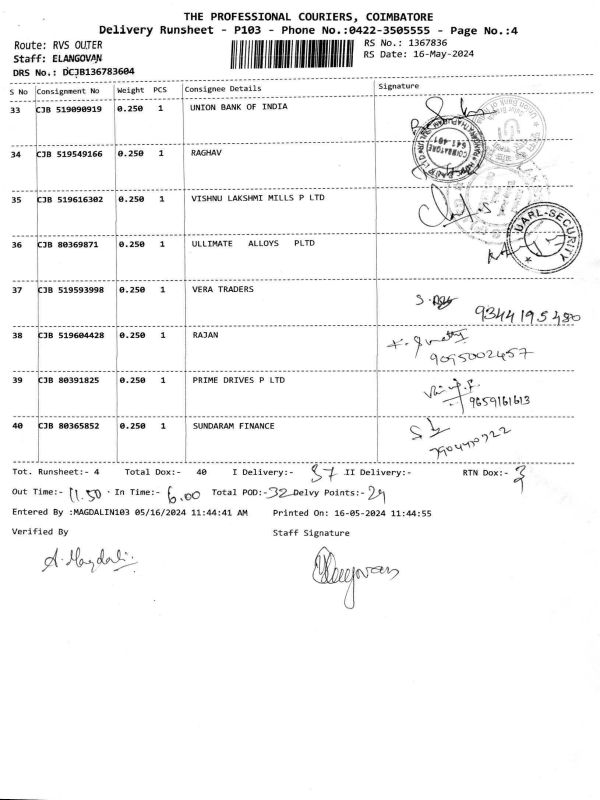 THE PROFESSIONAL COURIERS, COIMBATORE
Delivery Runsheet - P103 - Phone No.:0422-3505555 - Page No.:4
Route: RVS OUTER
RS No.: 1367836
Staff: ELANGOVAN
RS Date: 16-May-2024
DRS No.: DCJB136783604
S No Consignment No Weight PCS Consignee Details Signature
33 CJB 519090919 0.250 1 UNION BANK OF INDIA
COIMBATORE
641 401
34 CJB 519549166 0.250 1 RAGHAV
35 CJB 519616302 0.250 1 VISHNU LAKSHMI MILLS P LTD
UARL-SECURITY
36 CJB 80369871 0.250 1 ULLIMATE ALLOYS PLTD
37 CJB 519593998 0.250 1 VERA TRADERS
9344195480
38 CJB 519604428 0.250 1 RAJAN
9095002457
39 CJB 80391825 0.250 1 PRIME DRIVES P LTD
9659161613
40 CJB 80365852 0.250 1 SUNDARAM FINANCE
Tot. Runsheet:- 4 Total Dox:- 40 I Delivery:- 37 II Delivery:- RTN Dox:- 3
Out Time:- 11.50 In Time:- 6.00 Total POD:- 32 Delvy Points:- 29
Entered By :MAGDALIN103 05/16/2024 11:44:41 AM Printed On: 16-05-2024 11:44:55
Verified By Staff Signature
A. Magdali
Elangovan